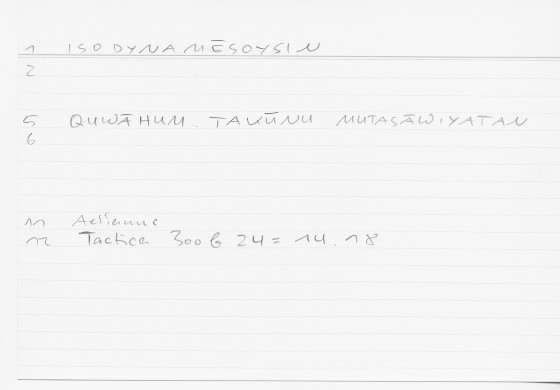 1 ISODYNAMĒSOYSIN
2
5 QUWĀHUM.. TAKŪNU MUTASĀWIYATAN
6
11 Aelianus
12 Tactica 300 b 24 = 14.18